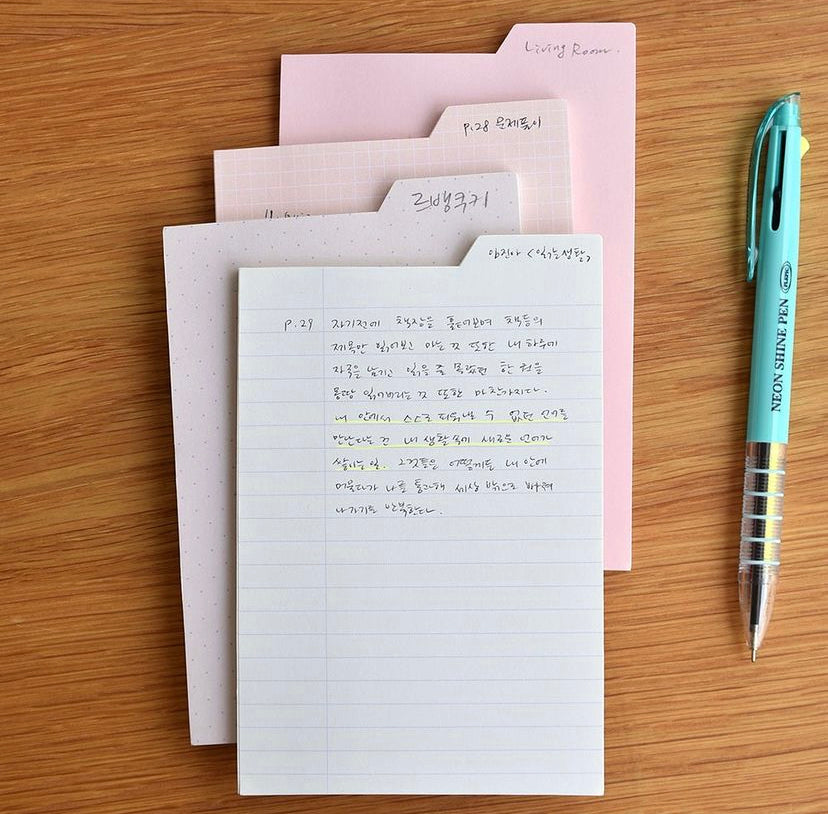 Living Room.
p.28 문제풀이
르뱅쿠키
임진아 <읽는 생활>
p.29 자기전에 책장을 훑어보며 책등의
제목만 읽어보고 아는 것 또한 내 하루에
자국을 남기고 읽을 줄 몰랐던 한 권을
몽땅 읽어버리는 것 또한 마찬가지다.
내 안에서 스스로 피워낼 수 없던 언어를
만난다는 건 내 생활 속에 새로운 언어가
쌓이는 일. 그것들은 어떻게든 내 안에
머물다가 나를 통과해 세상 밖으로 빠져
나가기도 반복한다.
NEON SHINE PEN